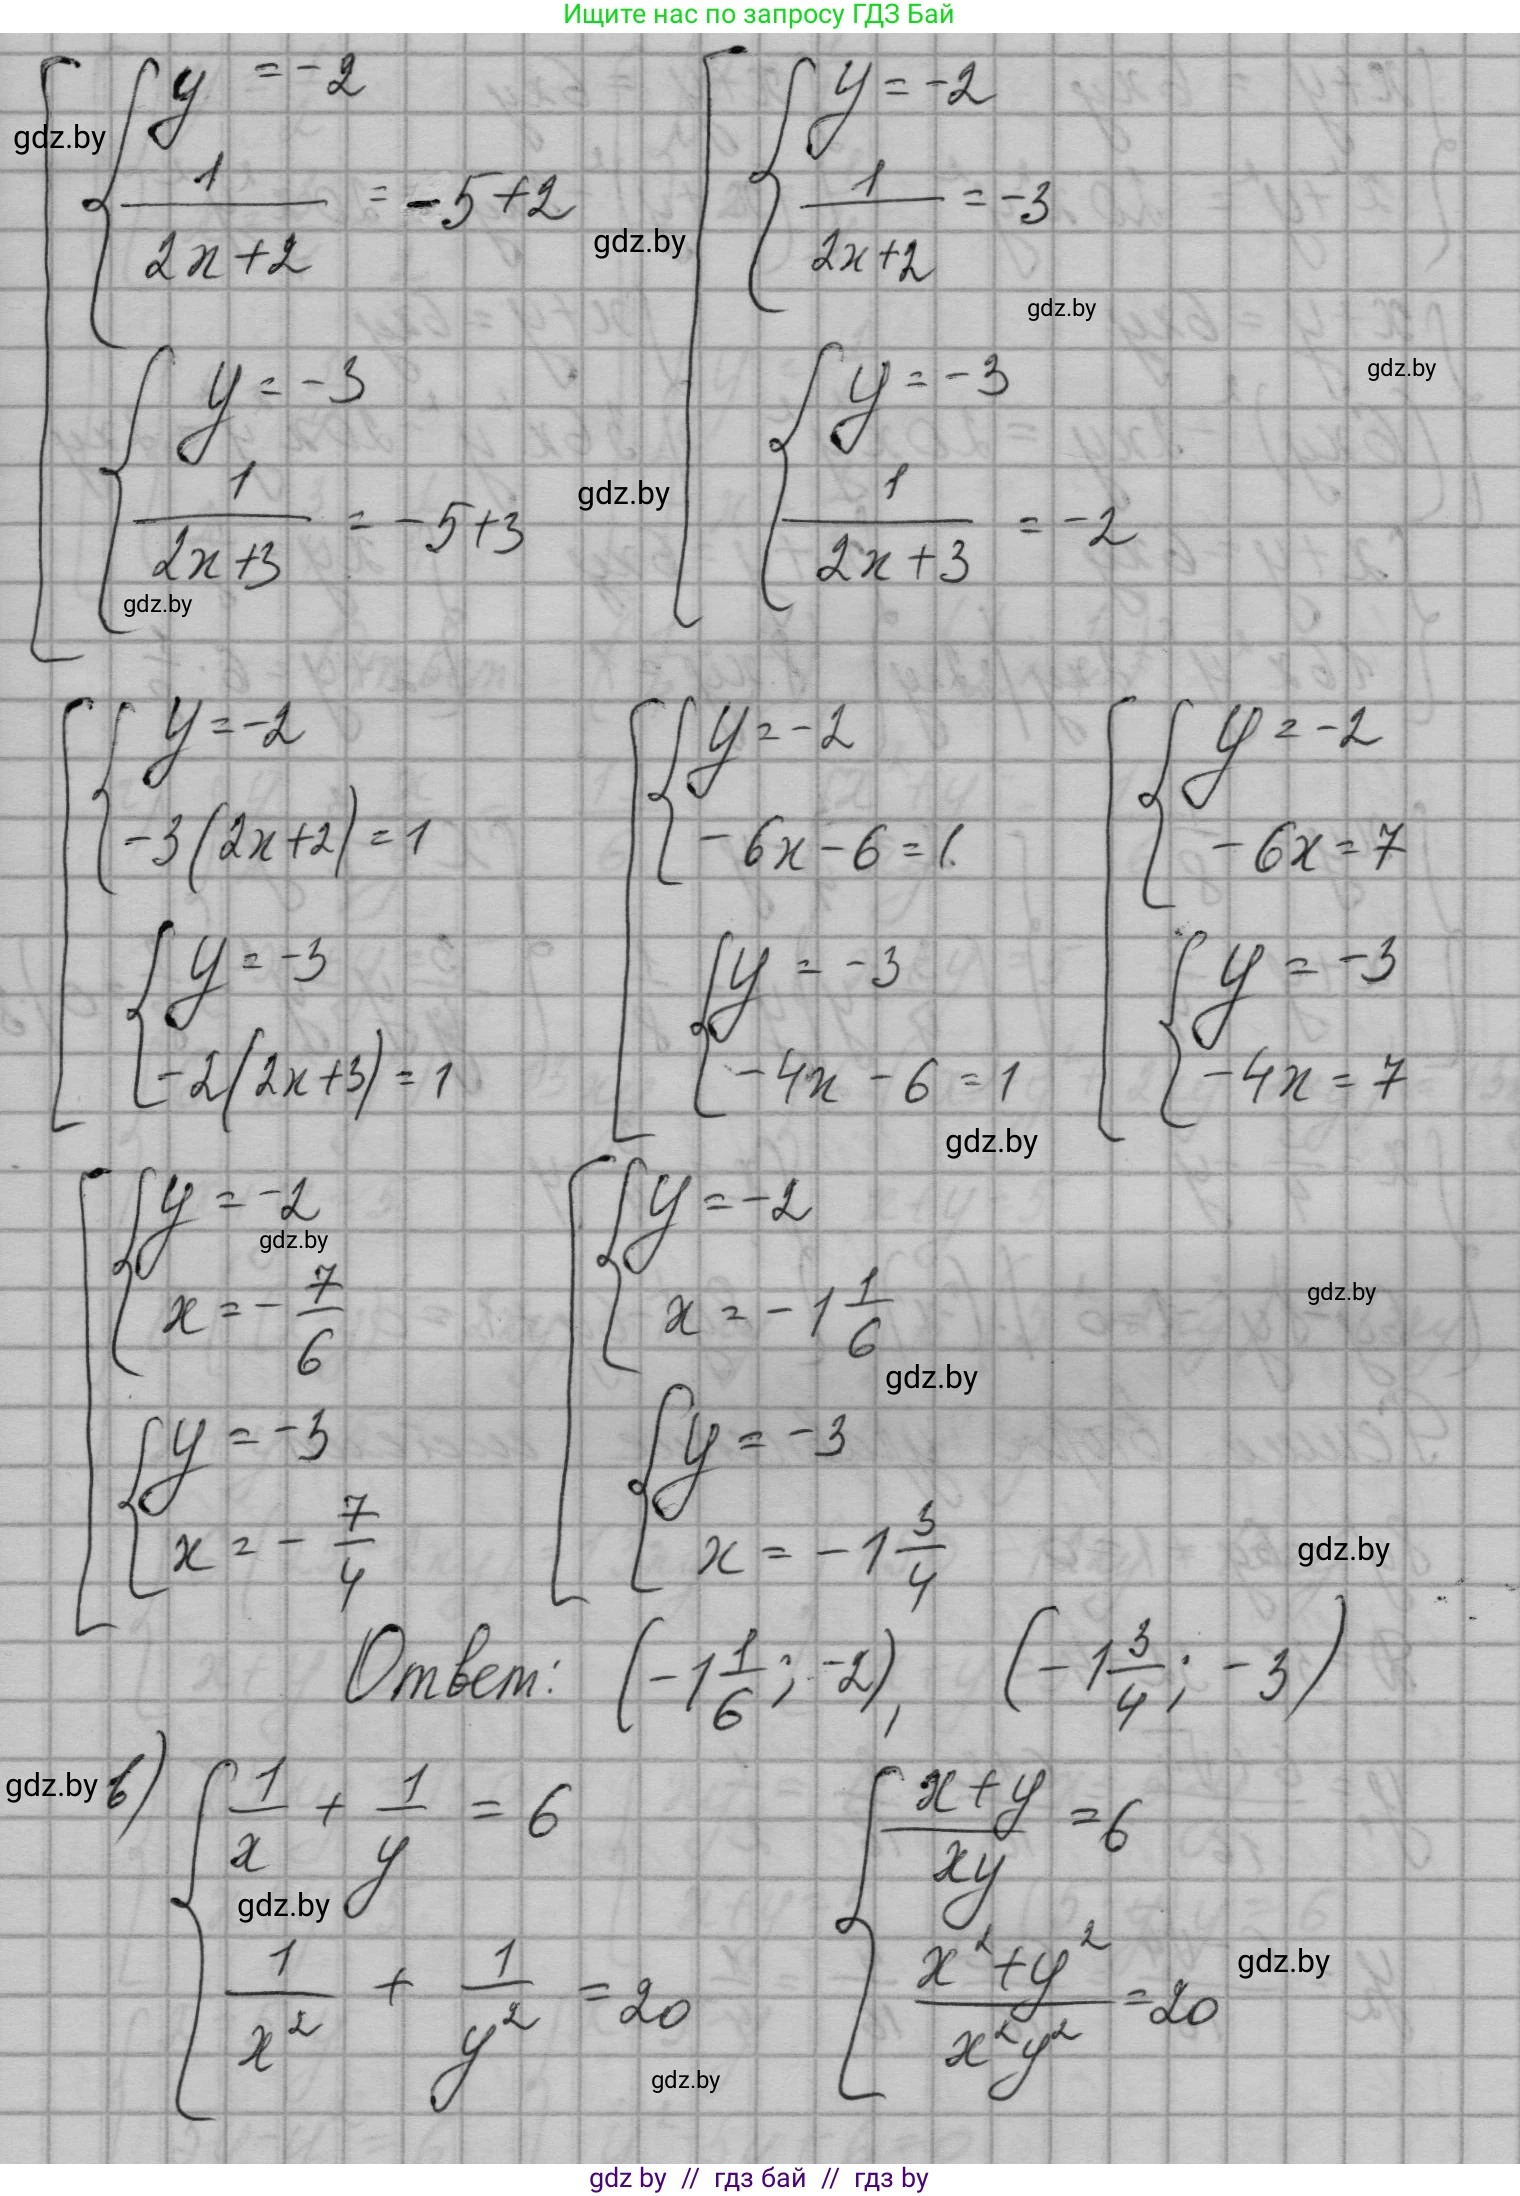 Ищите нас по запросу ГДЗ Бай
y = -2
1/(2x+2) = -5+2
y = -3
1/(2x+3) = -5+3
y = -2
1/(2x+2) = -3
y = -3
1/(2x+3) = -2
gdz.by
gdz.by
gdz.by
gdz.by
gdz.by
gdz.by
y = -2
-3(2x+2) = 1
y = -3
-2(2x+3) = 1
y = -2
-6x-6 = 1
y = -3
-4x-6 = 1
y = -2
-6x = 7
y = -3
-4x = 7
gdz.by
y = -2
x = -7/6
y = -3
x = -7/4
y = -2
x = -1 1/6
y = -3
x = -1 3/4
gdz.by
gdz.by
gdz.by
gdz.by
Ответ: (-1 1/6; -2), (-1 3/4; -3)
gdz.by
в) 1/x + 1/y = 6
1/x² + 1/y² = 20
(x+y)/(xy) = 6
(x²+y²)/(x²y²) = 20
gdz.by
gdz.by
gdz.by
gdz by // гдз бай // гдз by